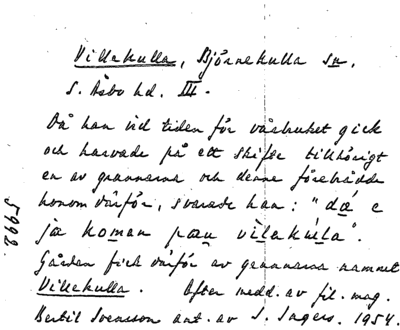 Villakulla, Björnekulla sn.
S. Åsbo hd. III.
Då han vid tiden för vårbruket gick
och harvade på ett skifte tillhörigt
en av grannarna och denne förebrådde
honom därför, svarade han: "dá e
ja koman pau vìlakúla".
Gården fick därför av grannarna namnet
Villakulla. Efter medd. av fil. mag.
Bertil Svensson ant. av S. Ingers. 1954.
5992.